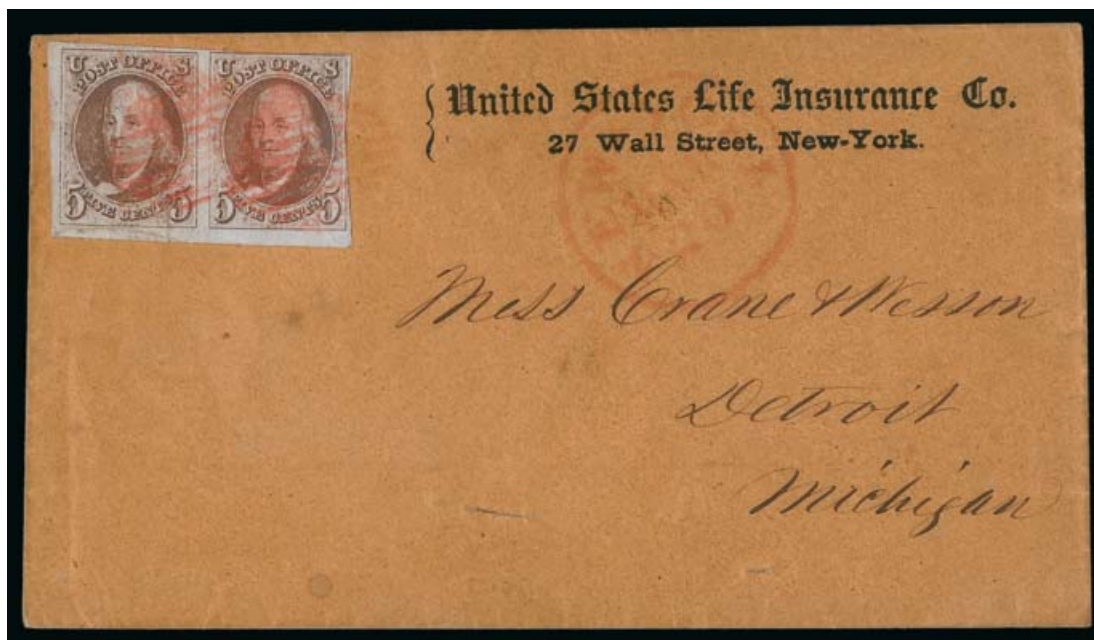 U S U S
POST OFFICE POST OFFICE
5 FIVE CENTS 5 5 FIVE CENTS 5
United States Life Insurance Co.
27 Wall Street, New-York.
Mess Crane & Wesson
Detroit
Michigan